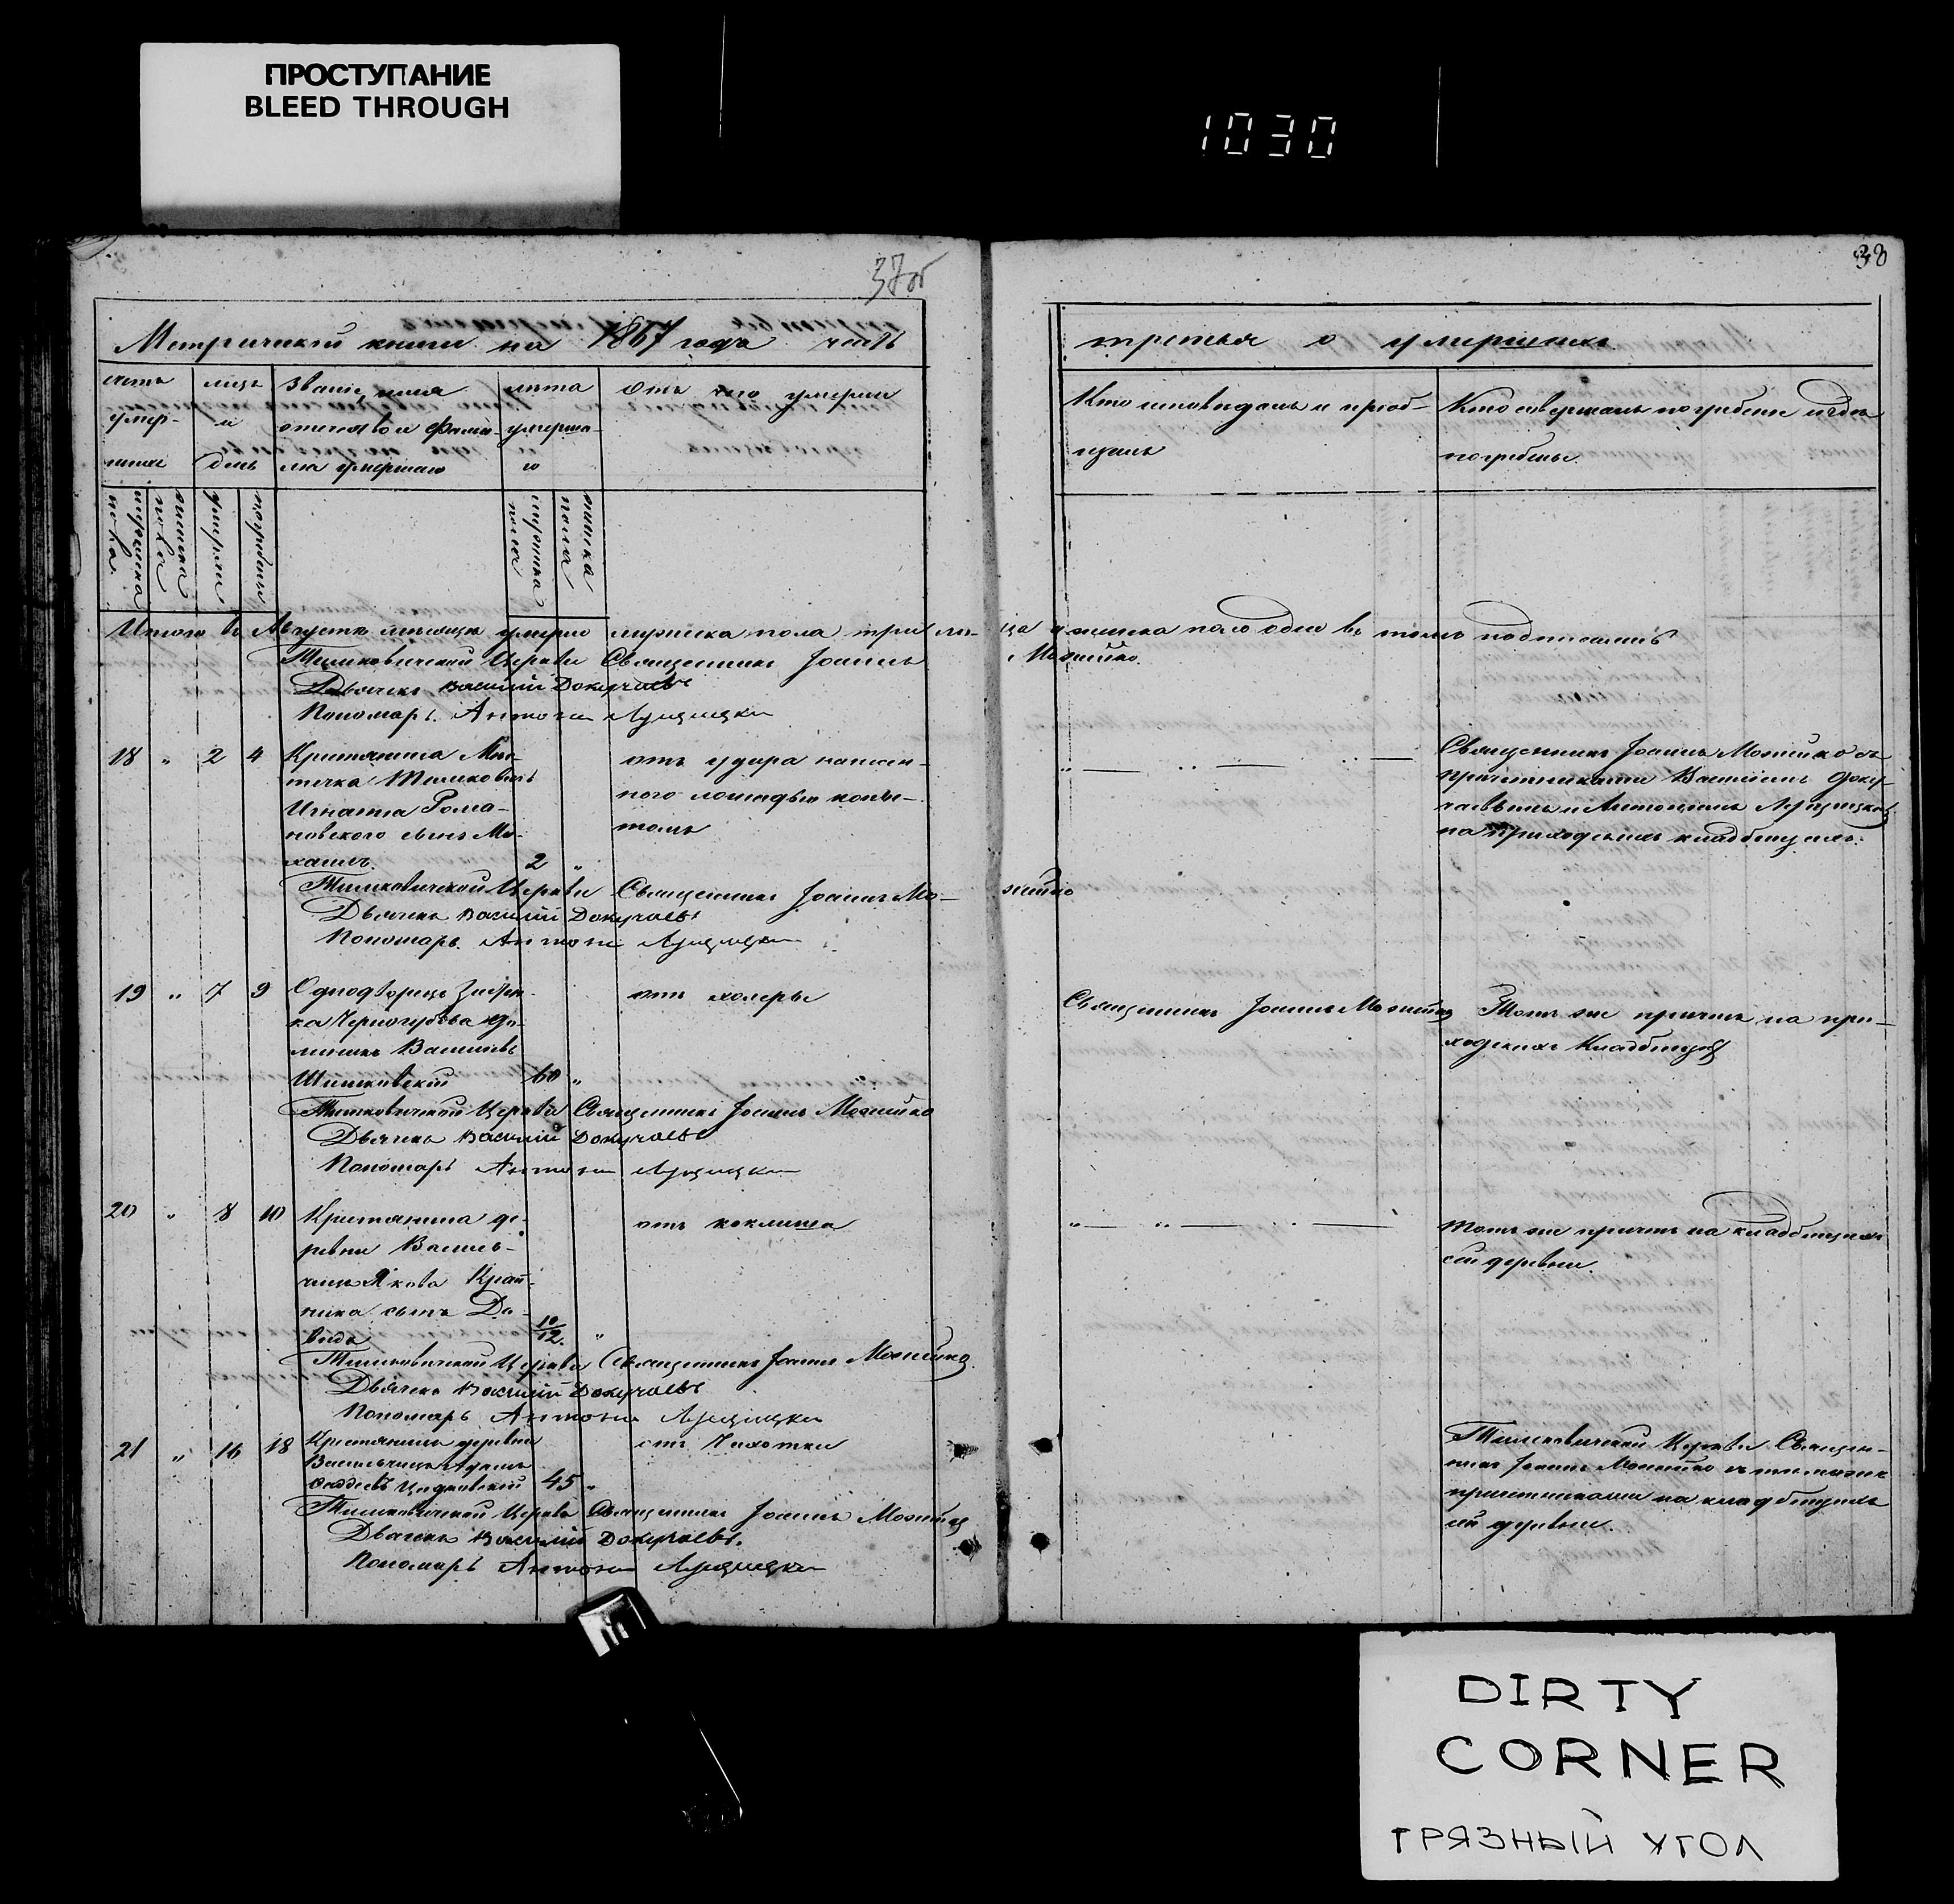 ПРОСТУПАНИЕ
BLEED THROUGH
1030
37об
38
Метрической книги на 1867 года часть
третья о умершихъ
счетъ умер-шихъ
мужеска пола
женска пола
мѣсяцъ и день
умерли
погребены
Званіе, имя
отечество и фами-
лія умершаго
лѣта
умерша-
го
мужеска пола
женска пола
Отъ чего умерли
Кто исповѣдалъ и пріоб-
щалъ
Кто совершалъ погребеніе и гдѣ
погребены.
Итого въ Августѣ мѣсяцѣ умерло мужеска пола три ли-ца и женска пола одно въ томъ подписались
Церкви Священникъ Іоаннъ Можейко.
Дьячекъ Василій Докучаевъ
Пономарь Антоній
18 „ 2 4 Крестьянина Мѣс-
течка
Игнатія Рома-
новскаго сынъ Ми-
хаилъ. 2 „
отъ удара нанесен-
наго лошадью копы-
томъ
„ — „ — „ —
Священникъ Іоаннъ Можейко съ
причетниками Василіемъ Доку-
чаевымъ и Антоніемъ
на приходскомъ кладбищѣ.
Церкви Священникъ Іоаннъ Мо-жейко
Дьячекъ Василій Докучаевъ
Пономарь Антоній
19 „ 7 9 Однодворецъ
Василіевъ
60 „
отъ холеры
Священникъ Іоаннъ Можейко
Тотъ же причтъ на при-
ходскихъ Кладбищахъ
Церкви Священникъ Іоаннъ Можейко
Дьячекъ Василій Докучаевъ
Пономарь Антоній
20 „ 8 10 Крестьянина де-
ревни
Якова
сынъ Да-
видъ 10/12 „
отъ коклюша
„ — „ — „ —
тотъ же причтъ на кладбищахъ
сей деревни.
Церкви Священникъ Іоаннъ Можейко
Дьячекъ Василій Докучаевъ
Пономарь Антоній
21 „ 16 18 Крестьянинъ деревни
Адамъ
45 „
отъ Чахотки
Церкви Священ-
никъ Іоаннъ Можейко съ тѣми же
причетниками на кладбищахъ
сей деревни.
Церкви Священникъ Іоаннъ Можейко
Дьячекъ Василій Докучаевъ.
Пономарь Антоній
DIRTY
CORNER
ГРЯЗНЫЙ УГОЛ